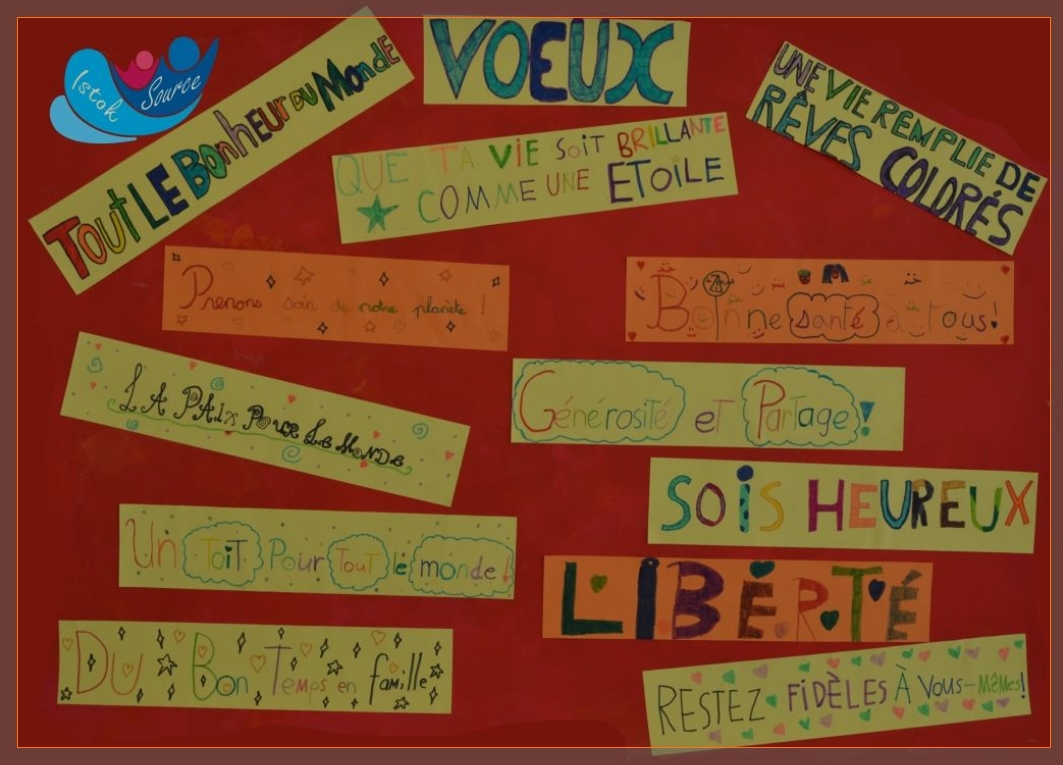 Istok
Source
TOUT LE BONHEUR DU MONDE
VOEUX
QUE TA VIE SOIT BRILLANTE
COMME UNE ETOILE
UNE VIE REMPLIE DE
RÊVES COLORÉS
Prenons soin de notre planète !
Bonne santé à tous!
LA PAIX POUR LE MONDE
Générosité et Partage!
SOIS HEUREUX
Un ToiT Pour TouT le monde!
LIBERTÉ
DU Bon Temps en famille
RESTEZ FIDÈLES À Vous-MêMes!